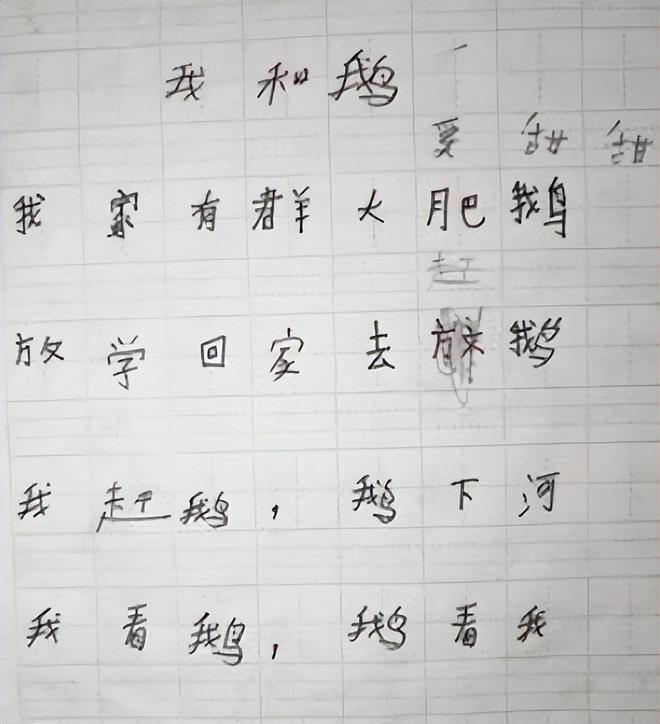 我和鹅
爱甜甜
我家有群大肥鹅
放学回家去放鹅
赶
我赶鹅，鹅下河
我看鹅，鹅看我